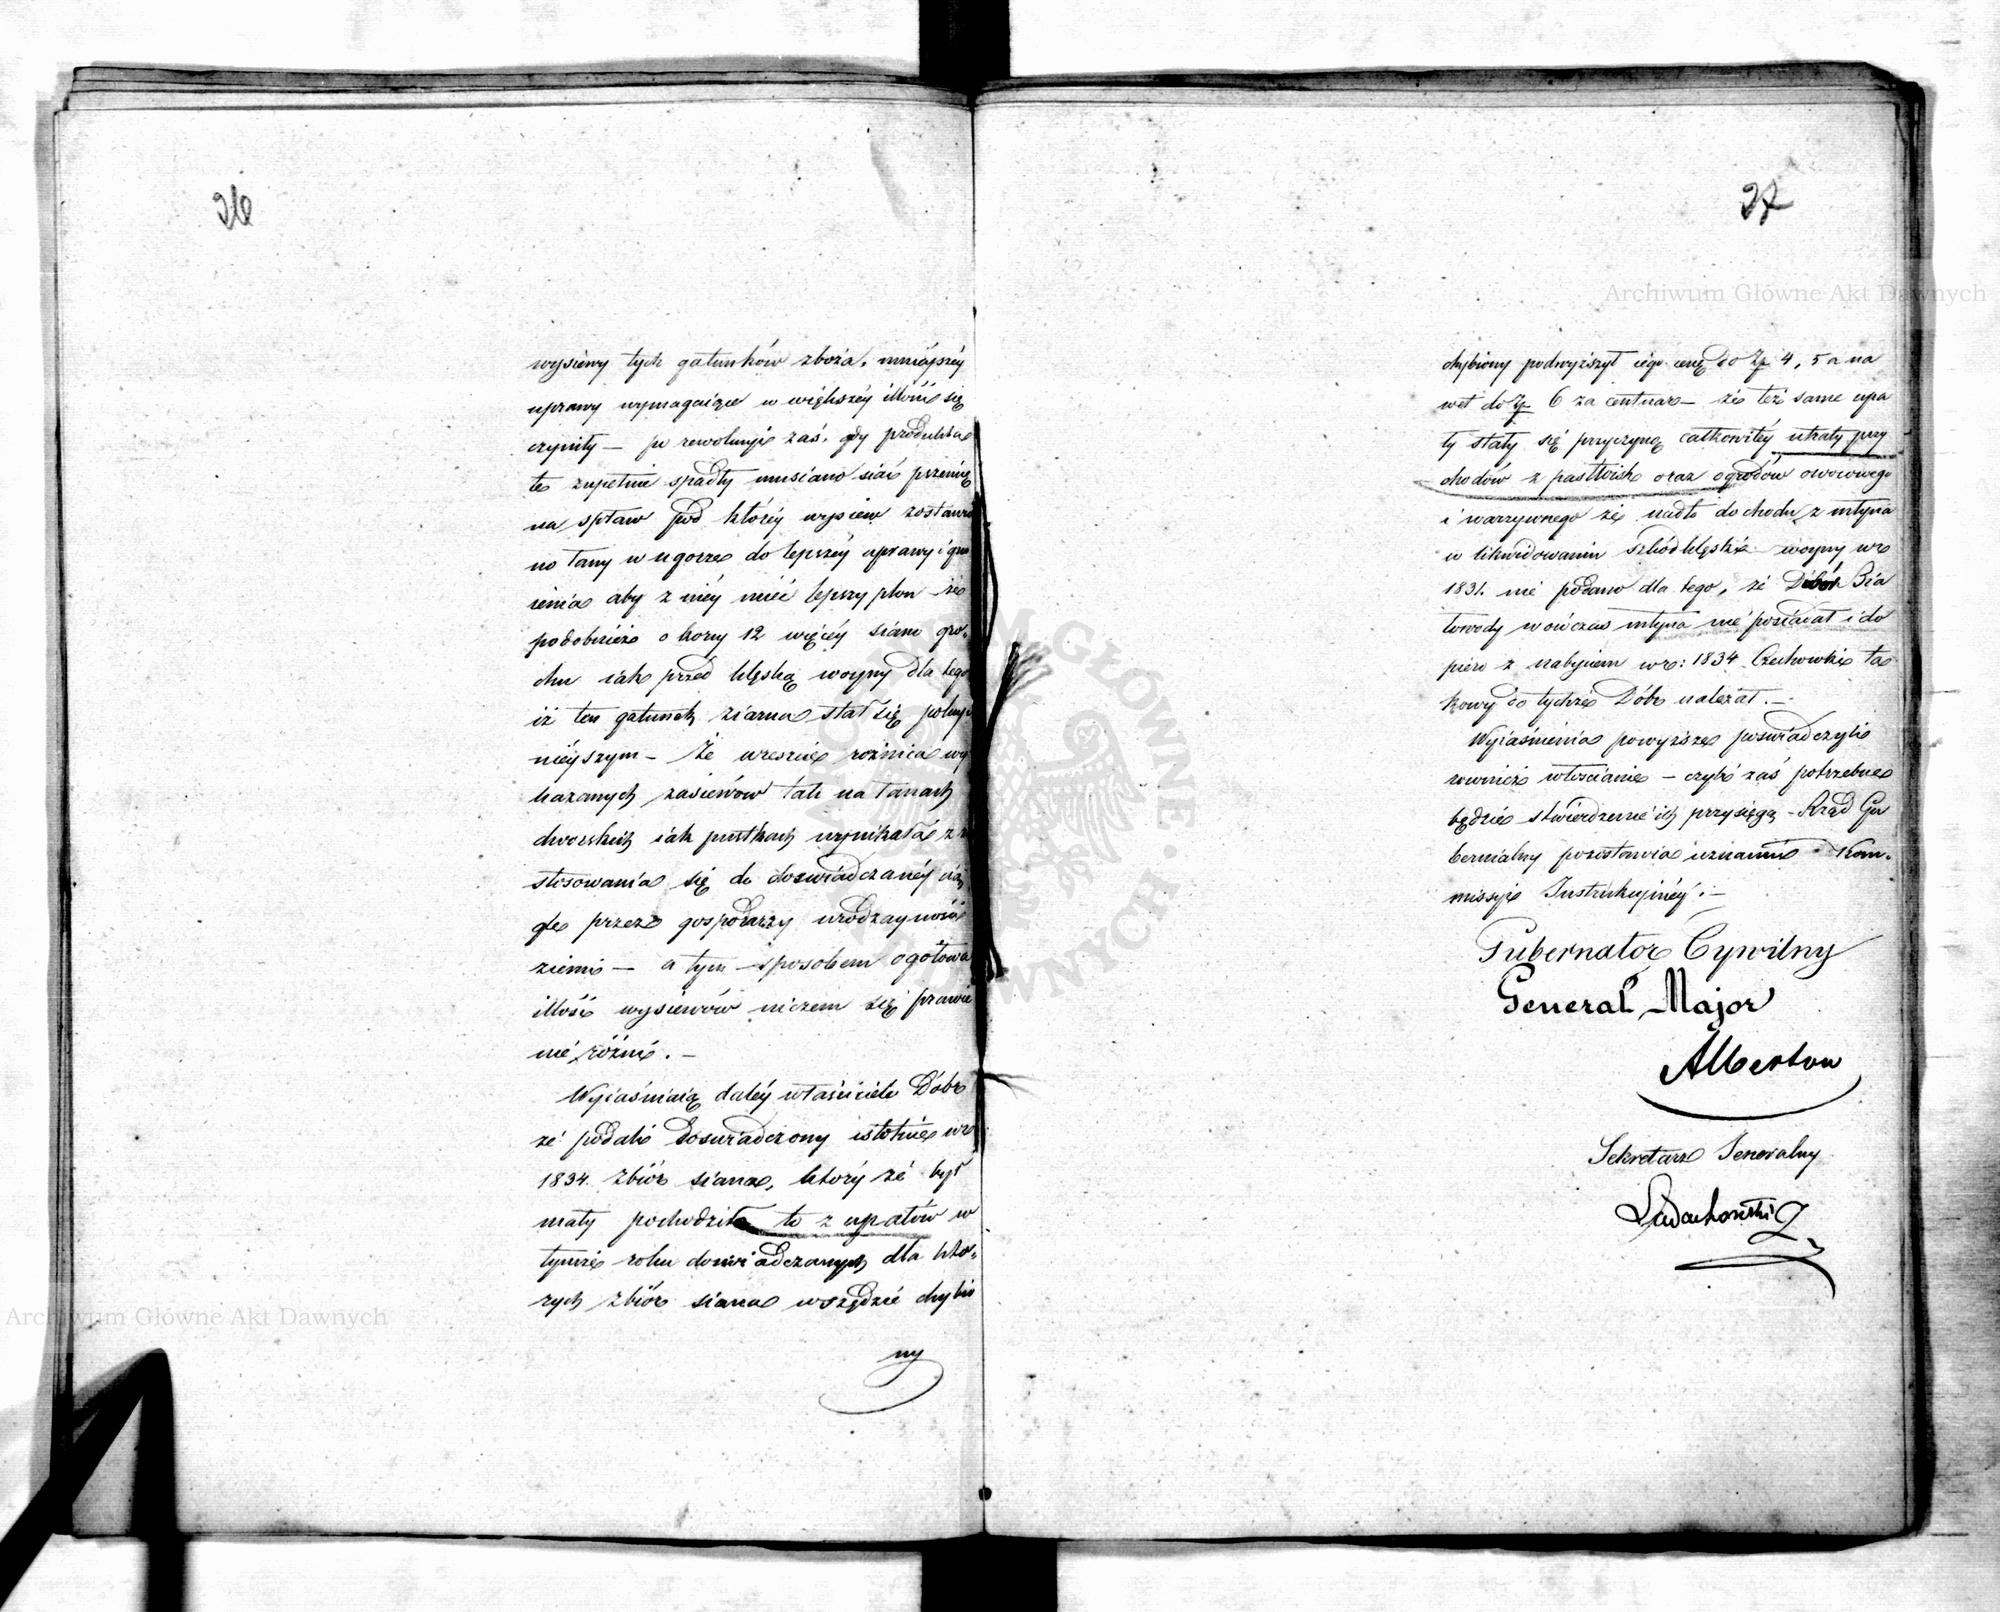 26
wysiewy tych gatunków zboża, mniéjszéy
uprawy wymagaiące w większéy illości się
czyniły — po rewolucyi zaś, gdy produkta
te zupełnie spadły musiano siać pszenicę
na spław pod któréy wysiew zostawio
no łany w ugorze do lepszéy uprawy i gno
ienia aby z niéy mieć lepszy plon — że
podobnież o korcy 12 więcéy siano gro-
chu iak przed klęską woyny dla tego
iż ten gatunek ziarna stał się pokup
nieyszym — Że wreszcie różnica wy
kazanych zasiewów tak na łanach
dworskich iak pustkach wynikała z za
stosowania się do doświadczanéy cią
gle przez gospodarzy urodzayności
ziemi — a tym sposobem ogółowa
illość wysiewów niczem się prawie
nie różni. —
Wyiaśniaią daléy właściciele Dóbr
że podali doświadczony istotnie w r.
1834 zbiór siana, który że był
mały pochodziło to z upałów w
tymże roku doświadczanych dla któ-
rych zbiór siana wszędzie chybio
ny
27
chybiony podwyższył iego cenę do Zp 4, 5 a na
wet do Zp 6 za centnar — że też same upa
ły stały się przyczyną całkowitéy utraty przy
chodów z pastwisk oraz ogrodów owocowego
i warzywnego że nadto dochodu z młyna
w likwidowaniu szkód klęski woyny w r.
1831. nie podano dla tego, że Dóbr Bia
łowody wówczas młyna nie posiadał i do
piero z nabyciem w r: 1834 Czechowki ta
kowy do tychże Dóbr należał. —
Wyiaśnienia powyższe poświadczyli
również włościanie — czyli zaś potrzebne
będzie stwierdzenie ich przysięgą — Rząd Gu
bernialny pozostawia uznaniu Kom-
missyi Instrukcyinéy. —
Gubernator Cywilny
Generał Major
Albertow
Sekretarz Jeneralny
Archiwum Główne Akt Dawnych
Archiwum Główne Akt Dawnych